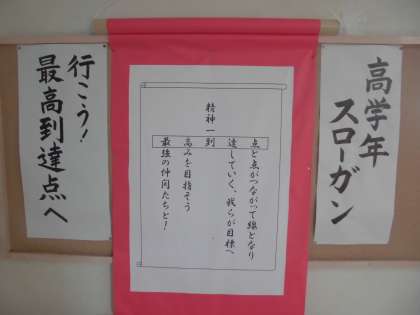 高学年
スローガン
精神一到
点と点がつながって線となり
達していく、我らが目標へ
高みを目指そう
最強の仲間たちと!
行こう!
最高到達点へ